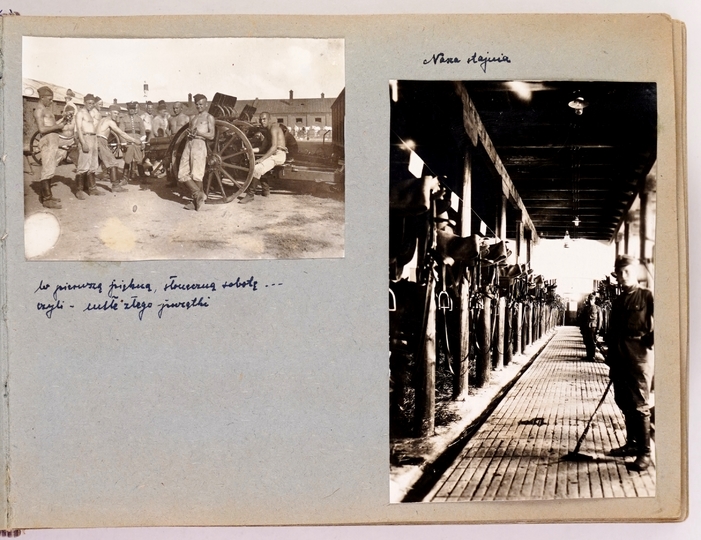 Nasza stajnia
W pierwszą piękną, słoneczną sobotę ...
czyli - miłe złego początki